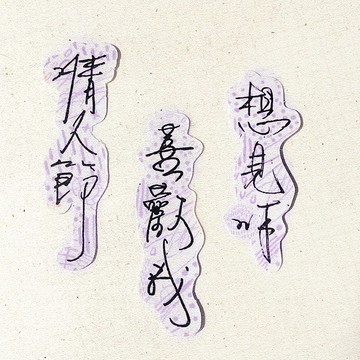 情人節
喜歡我
想見你